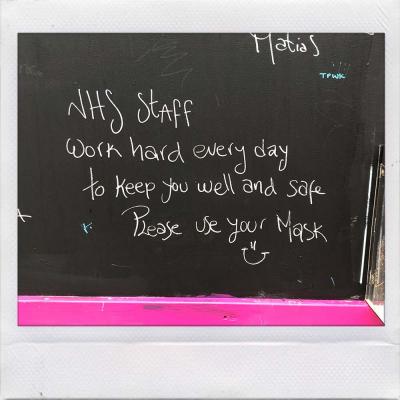 Matias
TPWK
NHS Staff
Work hard every day
to keep you well and safe
Please use your Mask